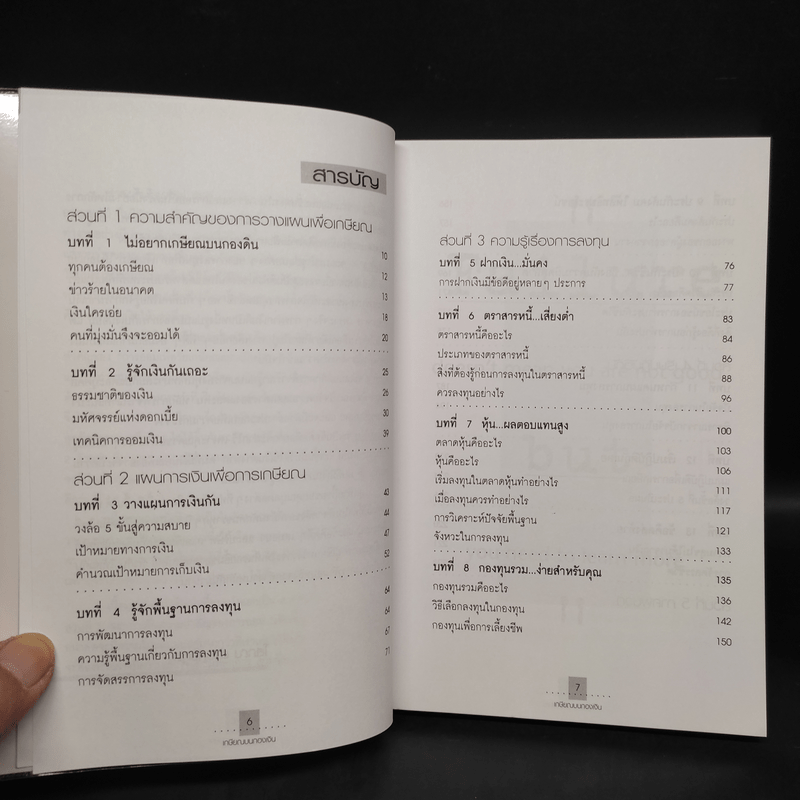 สารบัญ
ส่วนที่ 1 ความสำคัญของการวางแผนเพื่อเกษียณ
บทที่ 1 ไม่อยากเกษียณบนกองดิน 10
ทุกคนต้องเกษียณ 12
ข่าวร้ายในอนาคต 13
เงินใครเอ่ย 18
คนที่มุ่งมั่นจึงจะออมได้ 20
บทที่ 2 รู้จักเงินกันเถอะ 25
ธรรมชาติของเงิน 26
มหัศจรรย์แห่งดอกเบี้ย 30
เทคนิคการออมเงิน 39
ส่วนที่ 2 แผนการเงินเพื่อการเกษียณ
บทที่ 3 วางแผนการเงินกัน 43
วงล้อ 5 ขั้นสู่ความสบาย 44
เป้าหมายทางการเงิน 47
คำนวณเป้าหมายการเก็บเงิน 52
บทที่ 4 รู้จักพื้นฐานการลงทุน 64
การพัฒนาการลงทุน 64
ความรู้พื้นฐานเกี่ยวกับการลงทุน 67
การจัดสรรการลงทุน 71
6
เกษียณบนกองเงิน
ส่วนที่ 3 ความรู้เรื่องการลงทุน
บทที่ 5 ฝากเงิน...มั่นคง 76
การฝากเงินมีข้อดีอยู่หลายๆ ประการ 77
บทที่ 6 ตราสารหนี้...เสี่ยงต่ำ 83
ตราสารหนี้คืออะไร 84
ประเภทของตราสารหนี้ 86
สิ่งที่ต้องรู้ก่อนการลงทุนในตราสารหนี้ 88
ควรลงทุนอย่างไร 96
บทที่ 7 หุ้น...ผลตอบแทนสูง 100
ตลาดหุ้นคืออะไร 103
หุ้นคืออะไร 106
เริ่มลงทุนในตลาดหุ้นทำอย่างไร 111
เมื่อลงทุนควรทำอย่างไร 117
การวิเคราะห์ปัจจัยพื้นฐาน 121
จังหวะในการลงทุน 133
บทที่ 8 กองทุนรวม...ง่ายสำหรับคุณ 135
กองทุนรวมคืออะไร 136
วิธีเลือกลงทุนในกองทุน 142
กองทุนเพื่อการเลี้ยงชีพ 150
7
เกษียณบนกองเงิน